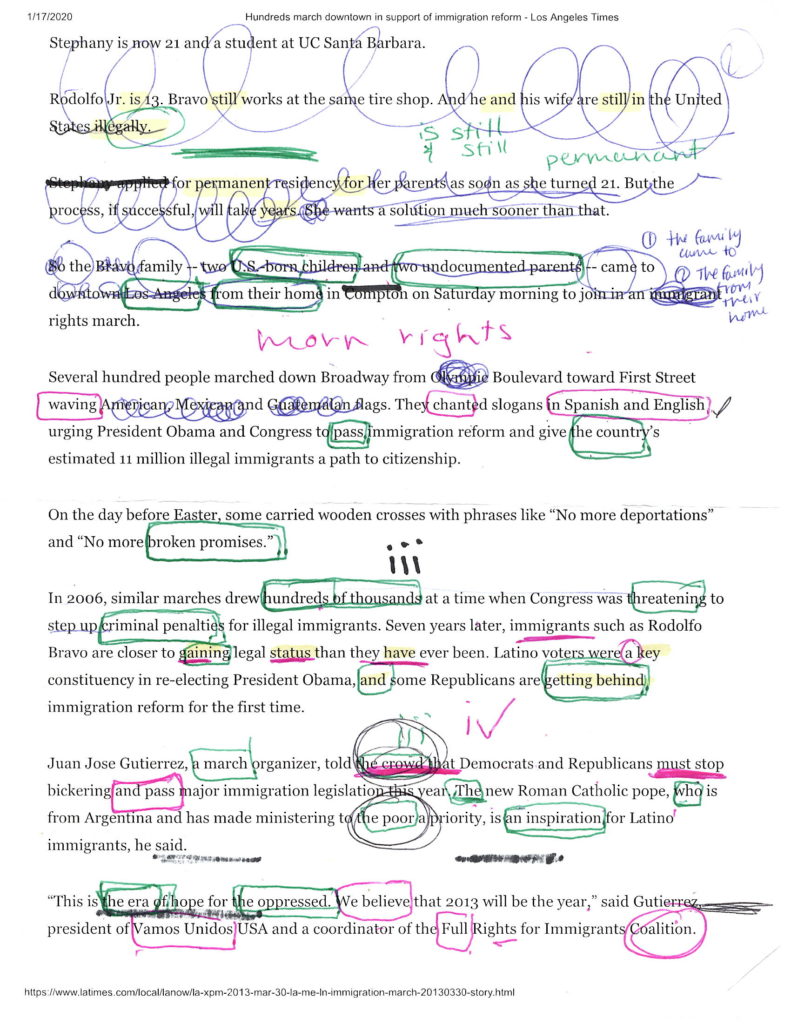 1/17/2020 Hundreds march downtown in support of immigration reform - Los Angeles Times
Stephany is now 21 and a student at UC Santa Barbara.
Rodolfo Jr. is 13. Bravo still works at the same tire shop. And he and his wife are still in the United
States illegally.
is still
& still
permanant
Stephany applied for permanent residency for her parents as soon as she turned 21. But the
process, if successful, will take years. She wants a solution much sooner than that.
① the family
came to
② The family
from
their
home
So the Bravo family -- two U.S.-born children and two undocumented parents -- came to
downtown Los Angeles from their home in Compton on Saturday morning to join in an immigrant
rights march.
morn rights
Several hundred people marched down Broadway from Olympic Boulevard toward First Street
waving American, Mexican and Guatemalan flags. They chanted slogans in Spanish and English,
urging President Obama and Congress to pass immigration reform and give the country's
estimated 11 million illegal immigrants a path to citizenship.
On the day before Easter, some carried wooden crosses with phrases like “No more deportations”
and “No more broken promises.”
iii
In 2006, similar marches drew hundreds of thousands at a time when Congress was threatening to
step up criminal penalties for illegal immigrants. Seven years later, immigrants such as Rodolfo
Bravo are closer to gaining legal status than they have ever been. Latino voters were a key
constituency in re-electing President Obama, and some Republicans are getting behind
immigration reform for the first time.
iii
iv
Juan Jose Gutierrez, a march organizer, told the crowd that Democrats and Republicans must stop
bickering and pass major immigration legislation this year. The new Roman Catholic pope, who is
from Argentina and has made ministering to the poor a priority, is an inspiration for Latino
immigrants, he said.
“This is the era of hope for the oppressed. We believe that 2013 will be the year,” said Gutierrez,
president of Vamos Unidos USA and a coordinator of the Full Rights for Immigrants Coalition.
https://www.latimes.com/local/lanow/la-xpm-2013-mar-30-la-me-ln-immigration-march-20130330-story.html